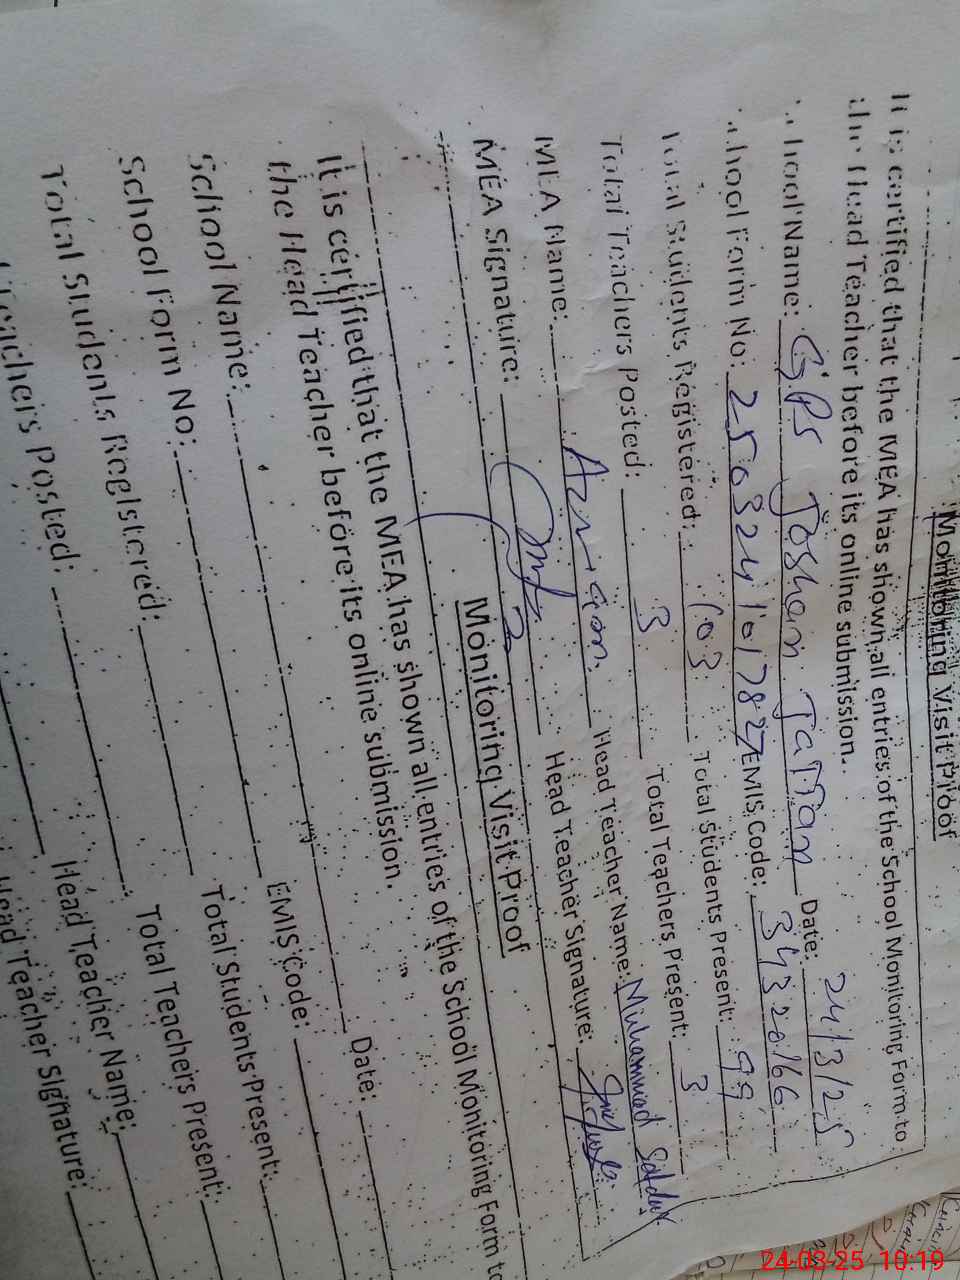 Monitoring Visit Proof
It is certified that the MEA has shown all entries of the School Monitoring Form to
the Head Teacher before its online submission.
School Name: GPS Joshan Jattan Date: 24/3/25
School Form No: EMIS Code: 34320166
Total Students Registered: 103 Total Students Present: 99
Total Teachers Posted: 3 Total Teachers Present: 3
MEA Name: Head Teacher Name: Muhammad
MEA Signature: Head Teacher Signature:
Monitoring Visit Proof
It is certified that the MEA has shown all entries of the School Monitoring Form to
the Head Teacher before its online submission.
School Name: Date:
School Form No: EMIS Code:
Total Students Registered: Total Students Present:
Teachers Posted: Total Teachers Present:
Head Teacher Name:
Head Teacher Signature:
24-03-25 10:19